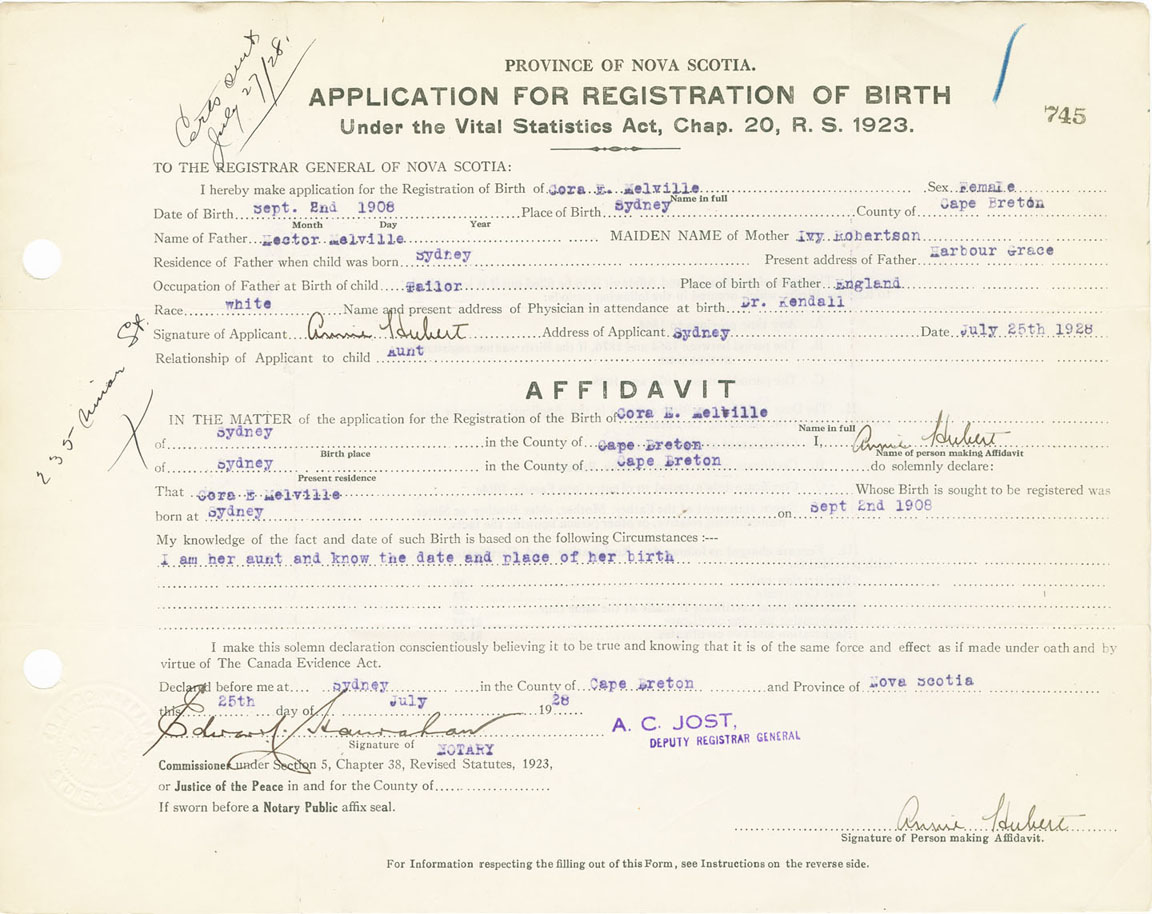 Certs sent
July 27/28.
PROVINCE OF NOVA SCOTIA.
APPLICATION FOR REGISTRATION OF BIRTH
745
Under the Vital Statistics Act, Chap. 20, R. S. 1923.
TO THE REGISTRAR GENERAL OF NOVA SCOTIA:
I hereby make application for the Registration of Birth of Cora E. Melville Sex Female
Name in full
Date of Birth sept. 2nd 1908 Place of Birth Sydney County of Cape Breton
Month Day Year
Name of Father Hector Melville MAIDEN NAME of Mother Ivy Robertson
Residence of Father when child was born Sydney Present address of Father Harbour Grace
Occupation of Father at Birth of child Tailor Place of birth of Father England
Race white Name and present address of Physician in attendance at birth Dr. Kendall
Signature of Applicant Annie Hubert Address of Applicant Sydney Date July 25th 1928
Relationship of Applicant to child Aunt
235 St.
AFFIDAVIT
IN THE MATTER of the application for the Registration of the Birth of Cora E. Melville
Name in full
of Sydney in the County of Cape Breton I, Annie Hubert
Birth place Name of person making Affidavit
of Sydney in the County of Cape Breton do solemnly declare:
Present residence
That Cora E Melville Whose Birth is sought to be registered was
born at Sydney on Sept 2nd 1908
My knowledge of the fact and date of such Birth is based on the following Circumstances :---
I am her aunt and know the date and place of her birth
I make this solemn declaration conscientiously believing it to be true and knowing that it is of the same force and effect as if made under oath and by
virtue of The Canada Evidence Act.
Declared before me at Sydney in the County of Cape Breton and Province of Nova Scotia
this 25th day of July 1928
A. C. JOST,
DEPUTY REGISTRAR GENERAL
Edward J. Hanrahan
Signature of NOTARY
Commissioner under Section 5, Chapter 38, Revised Statutes, 1923,
or Justice of the Peace in and for the County of
If sworn before a Notary Public affix seal.
Annie Hubert
Signature of Person making Affidavit.
For Information respecting the filling out of this Form, see Instructions on the reverse side.